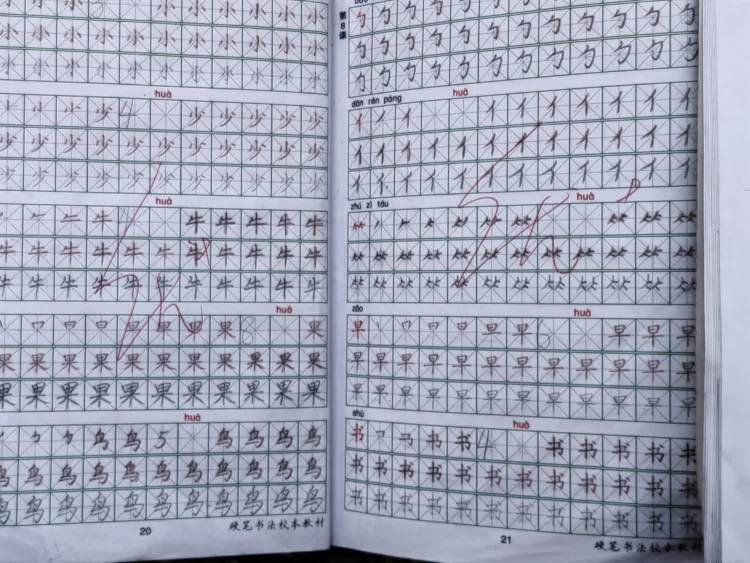 小 小 小 小 小 小 小 小 小 小 小
小 小 小 小 小 小 小 小 小 小 小
小 小 小 小 小 小 小 小 小 小 小
huà
少 少 4 少 少 少 少 少
少 少 少 少 少 少 少 少 少 少 少
少 少 少 少 少 少 少 少 少 少 少
huà
牛 4 牛 牛 牛 牛 牛
牛 牛 牛 牛 牛 牛 牛 牛 牛 牛 牛
牛 牛 牛 牛 牛 牛 牛 牛 牛 牛 牛
huà
果 果 8 果
果 果 果 果 果 果 果 果 果 果 果
果 果 果 果 果 果 果 果 果 果 果
huà
鸟 鸟 5 鸟 鸟 鸟 鸟
鸟 鸟 鸟 鸟 鸟 鸟 鸟 鸟 鸟 鸟 鸟
鸟 鸟 鸟 鸟 鸟 鸟 鸟 鸟 鸟 鸟 鸟
20
硬笔书法校本教材
第8课
勹 勹 勹 勹 勹 勹 勹 勹 勹 勹 勹
勹 勹 勹 勹 勹 勹 勹 勹 勹 勹 勹
勹 勹 勹 勹 勹 勹 勹 勹 勹 勹 勹
dān rén páng huà
亻 亻 亻 亻 亻 亻 亻 亻 亻 亻
亻 亻 亻 亻 亻 亻 亻 亻 亻 亻 亻 亻
亻 亻 亻 亻 亻 亻 亻 亻 亻 亻 亻 亻
zhú zì tóu huà
zǎo huà
早 早 早 6 早 早 早 早
早 早 早 早 早 早 早 早 早 早 早 早
早 早 早 早 早 早 早 早 早 早 早 早
shū huà
书 书 书 4 书 书 书 书 书
书 书 书 书 书 书 书 书 书 书 书 书
书 书 书 书 书 书 书 书 书 书 书 书
21
硬笔书法校本教材